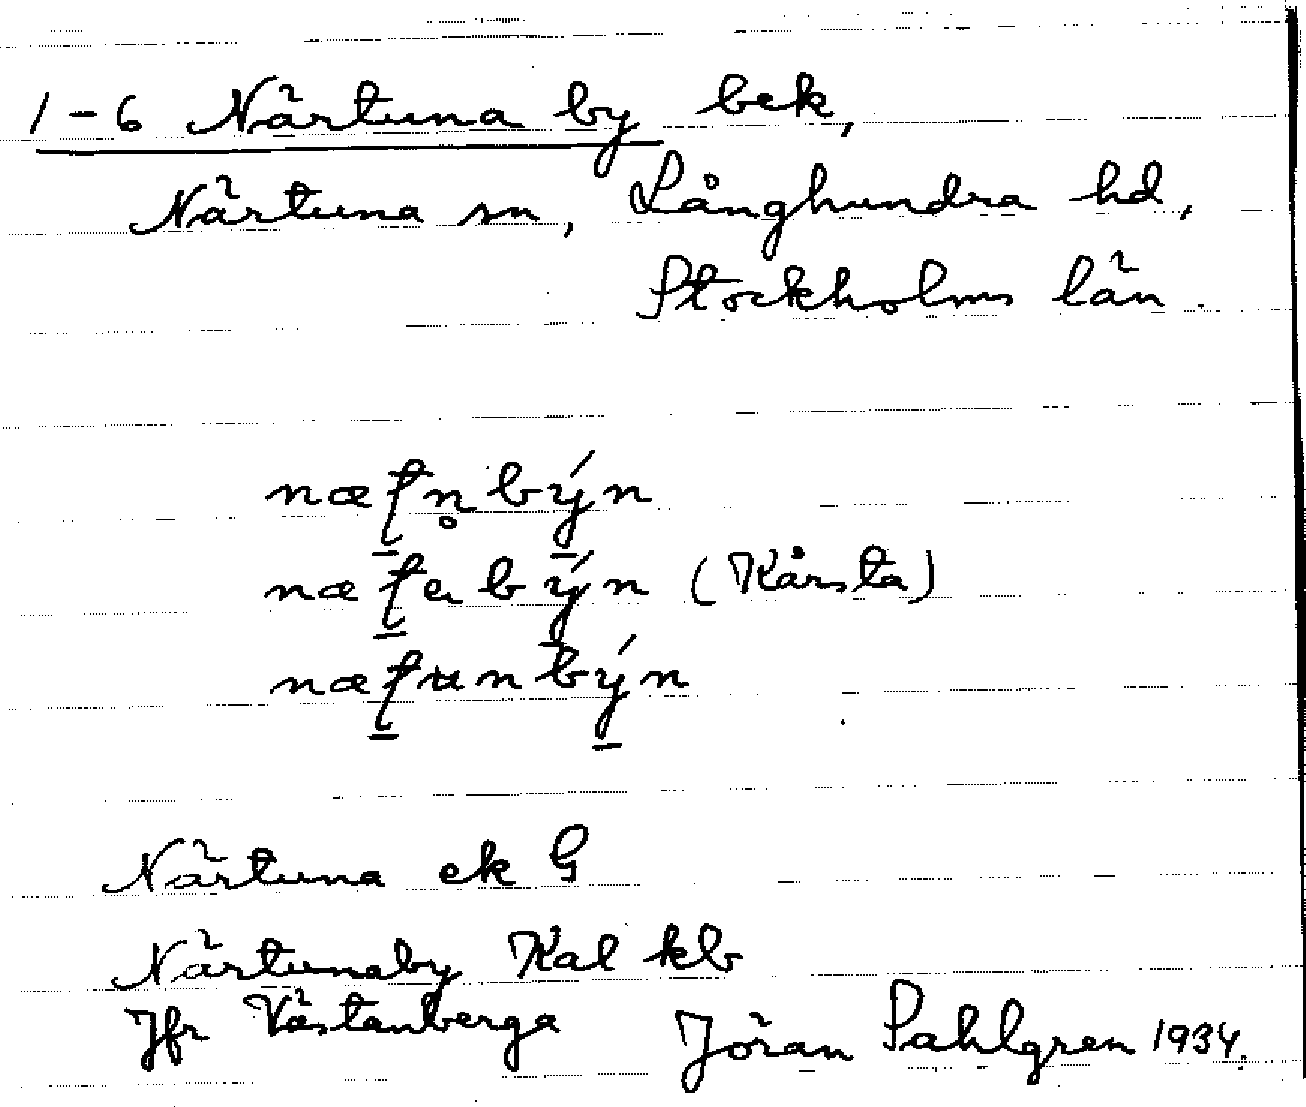 1-6 Närtuna by bek,
Närtuna sn, Långhundra hd,
Stockholms län.
næʈn̥býn
næʈabýn (Kårsta)
næʈunbýn
Närtuna ek G
Närtunaby Kal kb
Jfr Västanberga Jöran Sahlgren 1934.